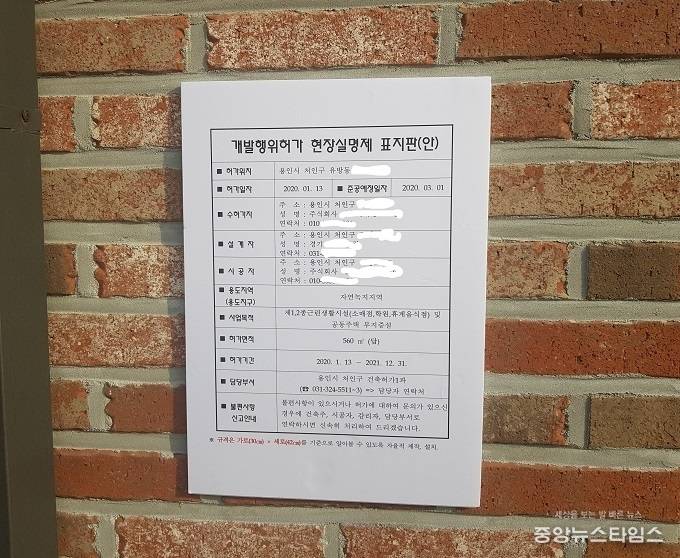 개발행위허가 현장실명제 표지판(안)
■ 허가위치 용인시 처인구 유방동
■ 허가일자 2020. 01. 13 ■ 준공예정일자 2020. 03. 01
■ 수허가자 주 소 : 용인시 처인구
성 명 : 주식회사
연락처 : 010
■ 설 계 자 주 소 : 용인시 처인구
성 명 : 경기
연락처 : 031-
■ 시 공 자 주 소 : 용인시 처인구
성 명 : 주식회사
연락처 : 010-
■ 용도지역 (용도지구) 자연녹지지역
■ 사업목적 제1,2종근린생활시설(소매점,학원,휴게음식점) 및
공동주택 부지증설
■ 허가면적 560 ㎡ (답)
■ 허가기간 2020. 1. 13 ~ 2021. 12. 31.
■ 담당부서 용인시 처인구 건축허가1과
(☎ 031-324-5511~3) => 담당자 연락처
■ 불편사항 신고안내 불편사항이 있으시거나 허가에 대하여 문의가 있으신
경우에 건축주, 시공자, 감리자, 담당부서로
연락하시면 신속히 처리하여 드리겠습니다.
※ 규격은 가로(30㎝) × 세로(42㎝)를 기준으로 알아볼 수 있도록 자율적 제작, 설치.
세상을 보는 발 빠른 뉴스
중앙뉴스타임스